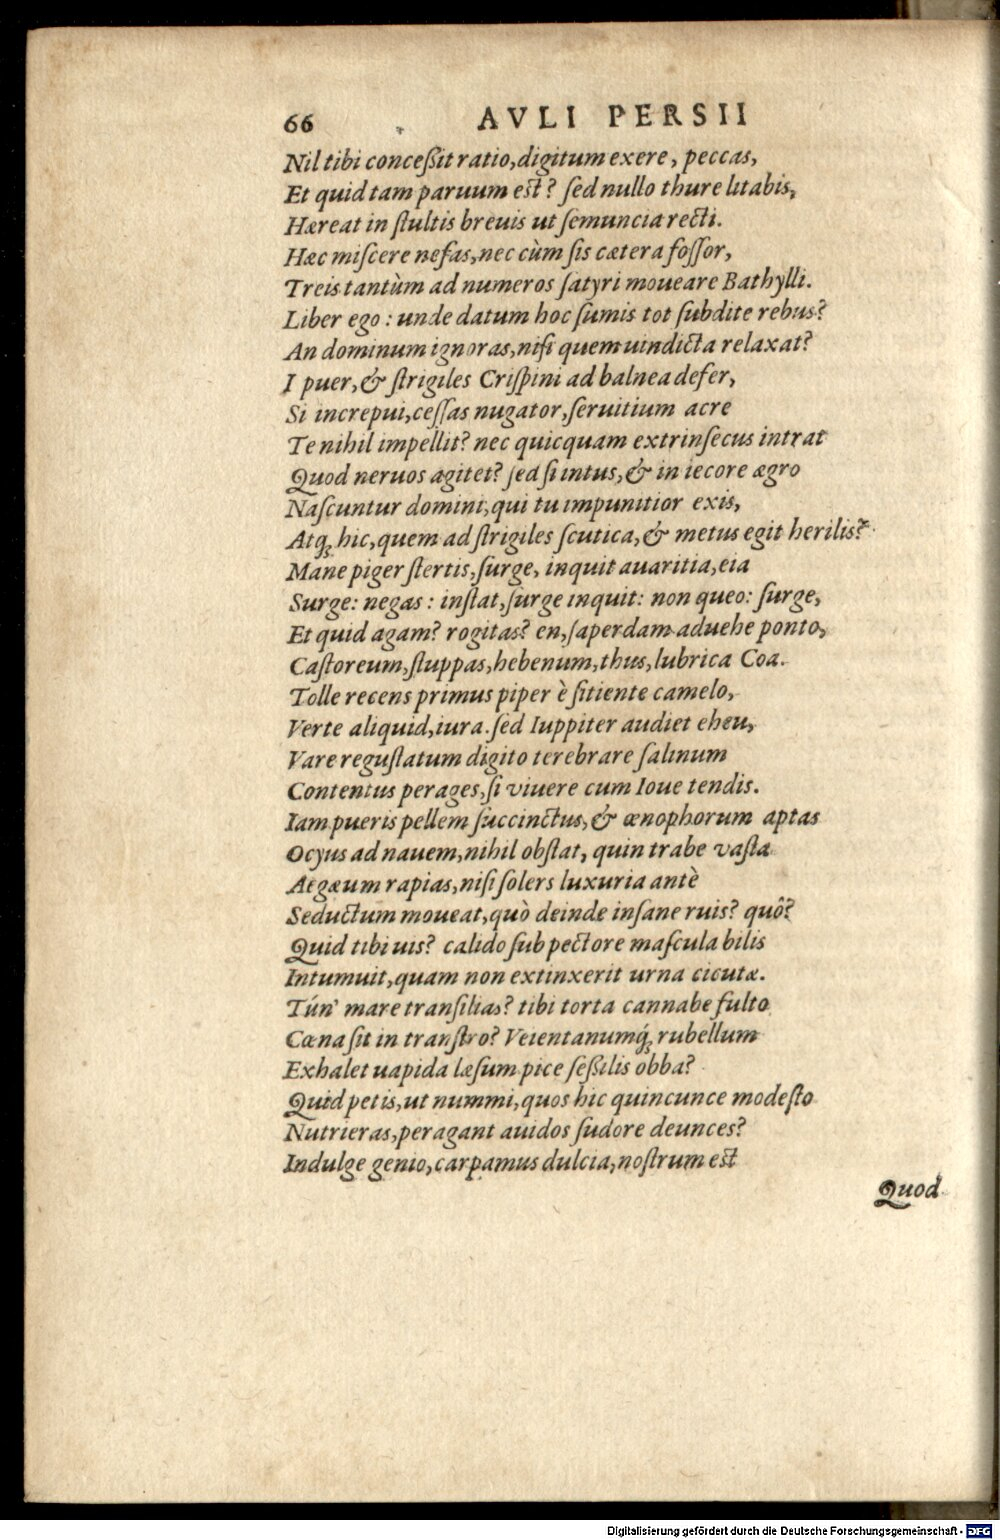 66 AVLI PERSII
Nil tibi conceßit ratio, digitum exere, peccas,
Et quid tam paruum est? ſed nullo thure litabis,
Hæreat in ſtultis breuis ut ſemuncia recti.
Hæc miſcere nefas, nec cùm ſis cætera foſſor,
Treis tantùm ad numeros ſatyri moueare Bathylli.
Liber ego: unde datum hoc ſumis tot ſubdite rebus?
An dominum ignoras, niſi quem uindicta relaxat?
I puer, & ſtrigiles Criſpini ad balnea defer,
Si increpui, ceſſas nugator, ſeruitium acre
Te nihil impellit? nec quicquam extrinſecus intrat
Quod neruos agitet? ſed ſi intus, & in iecore ægro
Naſcuntur domini, qui tu impunitior exis,
Atq; hic, quem ad ſtrigiles ſcutica, & metus egit herilis?
Mane piger ſtertis, ſurge, inquit auaritia, eia
Surge: negas: inſtat, ſurge inquit: non queo: ſurge,
Et quid agam? rogitas? en, ſaperdam aduehe ponto,
Caſtoreum, ſtuppas, hebenum, thus, lubrica Coa.
Tolle recens primus piper è ſitiente camelo,
Verte aliquid, iura. ſed Iuppiter audiet eheu,
Vare reguſtatum digito terebrare ſalinum
Contentus perages, ſi viuere cum Ioue tendis.
Iam pueris pellem ſuccinctus, & œnophorum aptas
Ocyus ad nauem, nihil obſtat, quin trabe vaſta
Aegæum rapias, niſi ſolers luxuria antè
Seductum moueat, quò deinde inſane ruis? quô?
Quid tibi uis? calido ſub pectore maſcula bilis
Intumuit, quam non extinxerit urna cicutæ.
Tún' mare tranſilias? tibi torta cannabe fulto
Cœna ſit in tranſtro? Veientanumq́; rubellum
Exhalet uapida læſum pice ſeßilis obba?
Quid petis, ut nummi, quos hic quincunce modeſto
Nutrieras, peragant auidos ſudore deunces?
Indulge genio, carpamus dulcia, noſtrum est
Quod
Digitalisierung gefördert durch die Deutsche Forschungsgemeinschaft - DFG